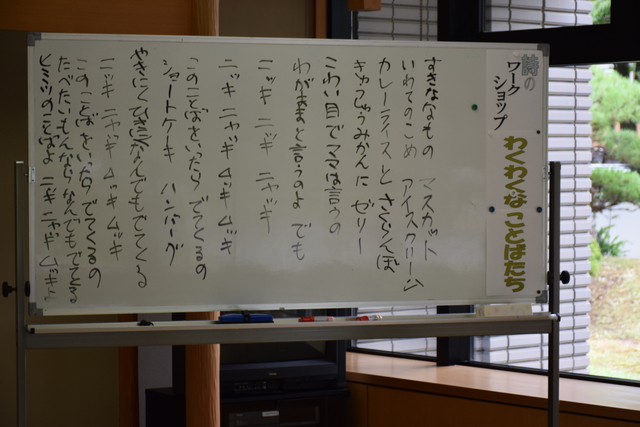 詩の
ワーク
ショップ
わくわくなことばたち
すきなもの マスカット
いわてのこめ アイスクリーム
カレーライスと さくらんぼ
きゅうしゅうみかんに ゼリー
こわい目でママは言うの
わがままと言うのよ でも
ニッキ ニッキ ニャッキ
ニッキ ニャッキ ムッキ ムッキ
このことばをいったら でてくるの
ショートケーキ ハンバーグ
やきにくでも なんでもでてくる
ニッキ ニャッキ ムッキ ムッキ
このことばをいったら でてくるの
たべたいもんなら なんでも でてくる
ヒミツのことばよ ニッキ ニャッキ ムッキ